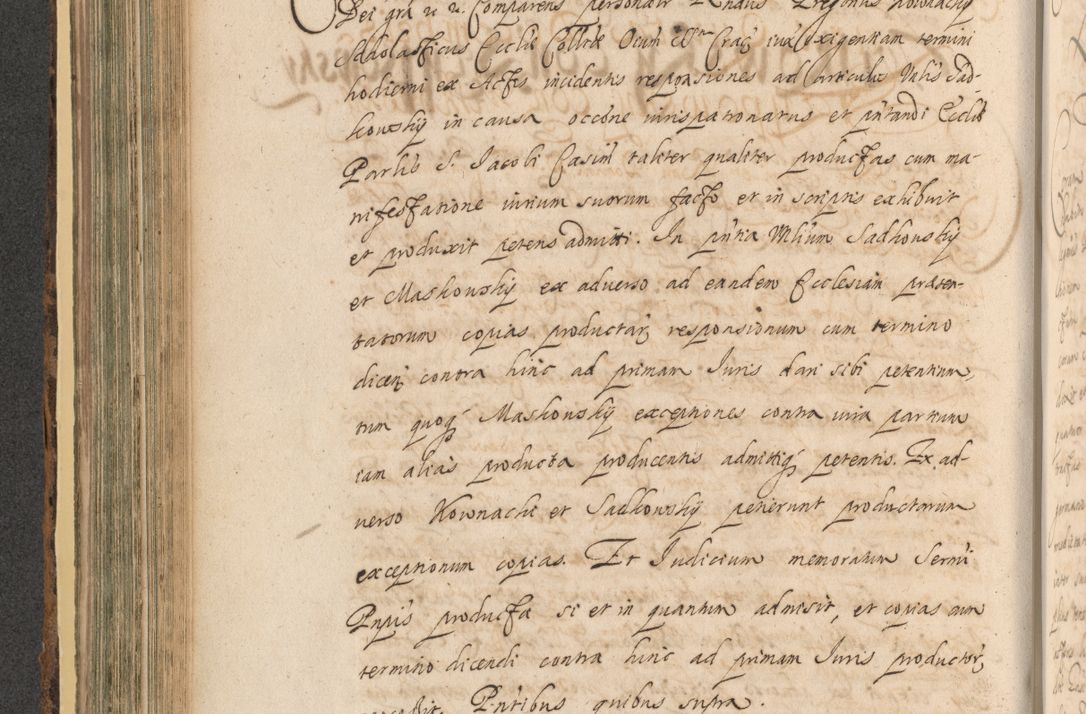 Dei gra etc etc. Comparens personaliter Rndus Gregorius Kownacky
Scholasticus Eccliae Collte Ocni Crac iuxta exigentiam termini
hodierni ex Actis incidentis responsiones ad articulos Nblis Sad-
kowsky in causa occone iurispatronatus et pntandi Eccliae
Parlis S. Jacobi Casim taliter qualiter productas cum ma-
nifestatione iurium suorum facto et in scriptis exhibuit
et produxit petens admitti. In pntia Nblium Sadkowsky
et Maskowsky ex adverso ad eandem Ecclesiam praesen-
tatorum copias productarq responsionum cum termino
dicenq contra hinc ad primam Juris dari sibi petentium,
tum quoq Maskowsky exceptiones contra iura partium
iam alias producta producentis admittiq petentis. Ex ad-
verso Kownacki et Sadkowsky petierunt productarum
exceptionum copias. Et Judicium memoratum Sermi
Pnpis producta si et in quantum admisit, et copias cum
termino dicendi contra hinc ad primam Juris productorq
Pntibus quibus supra.